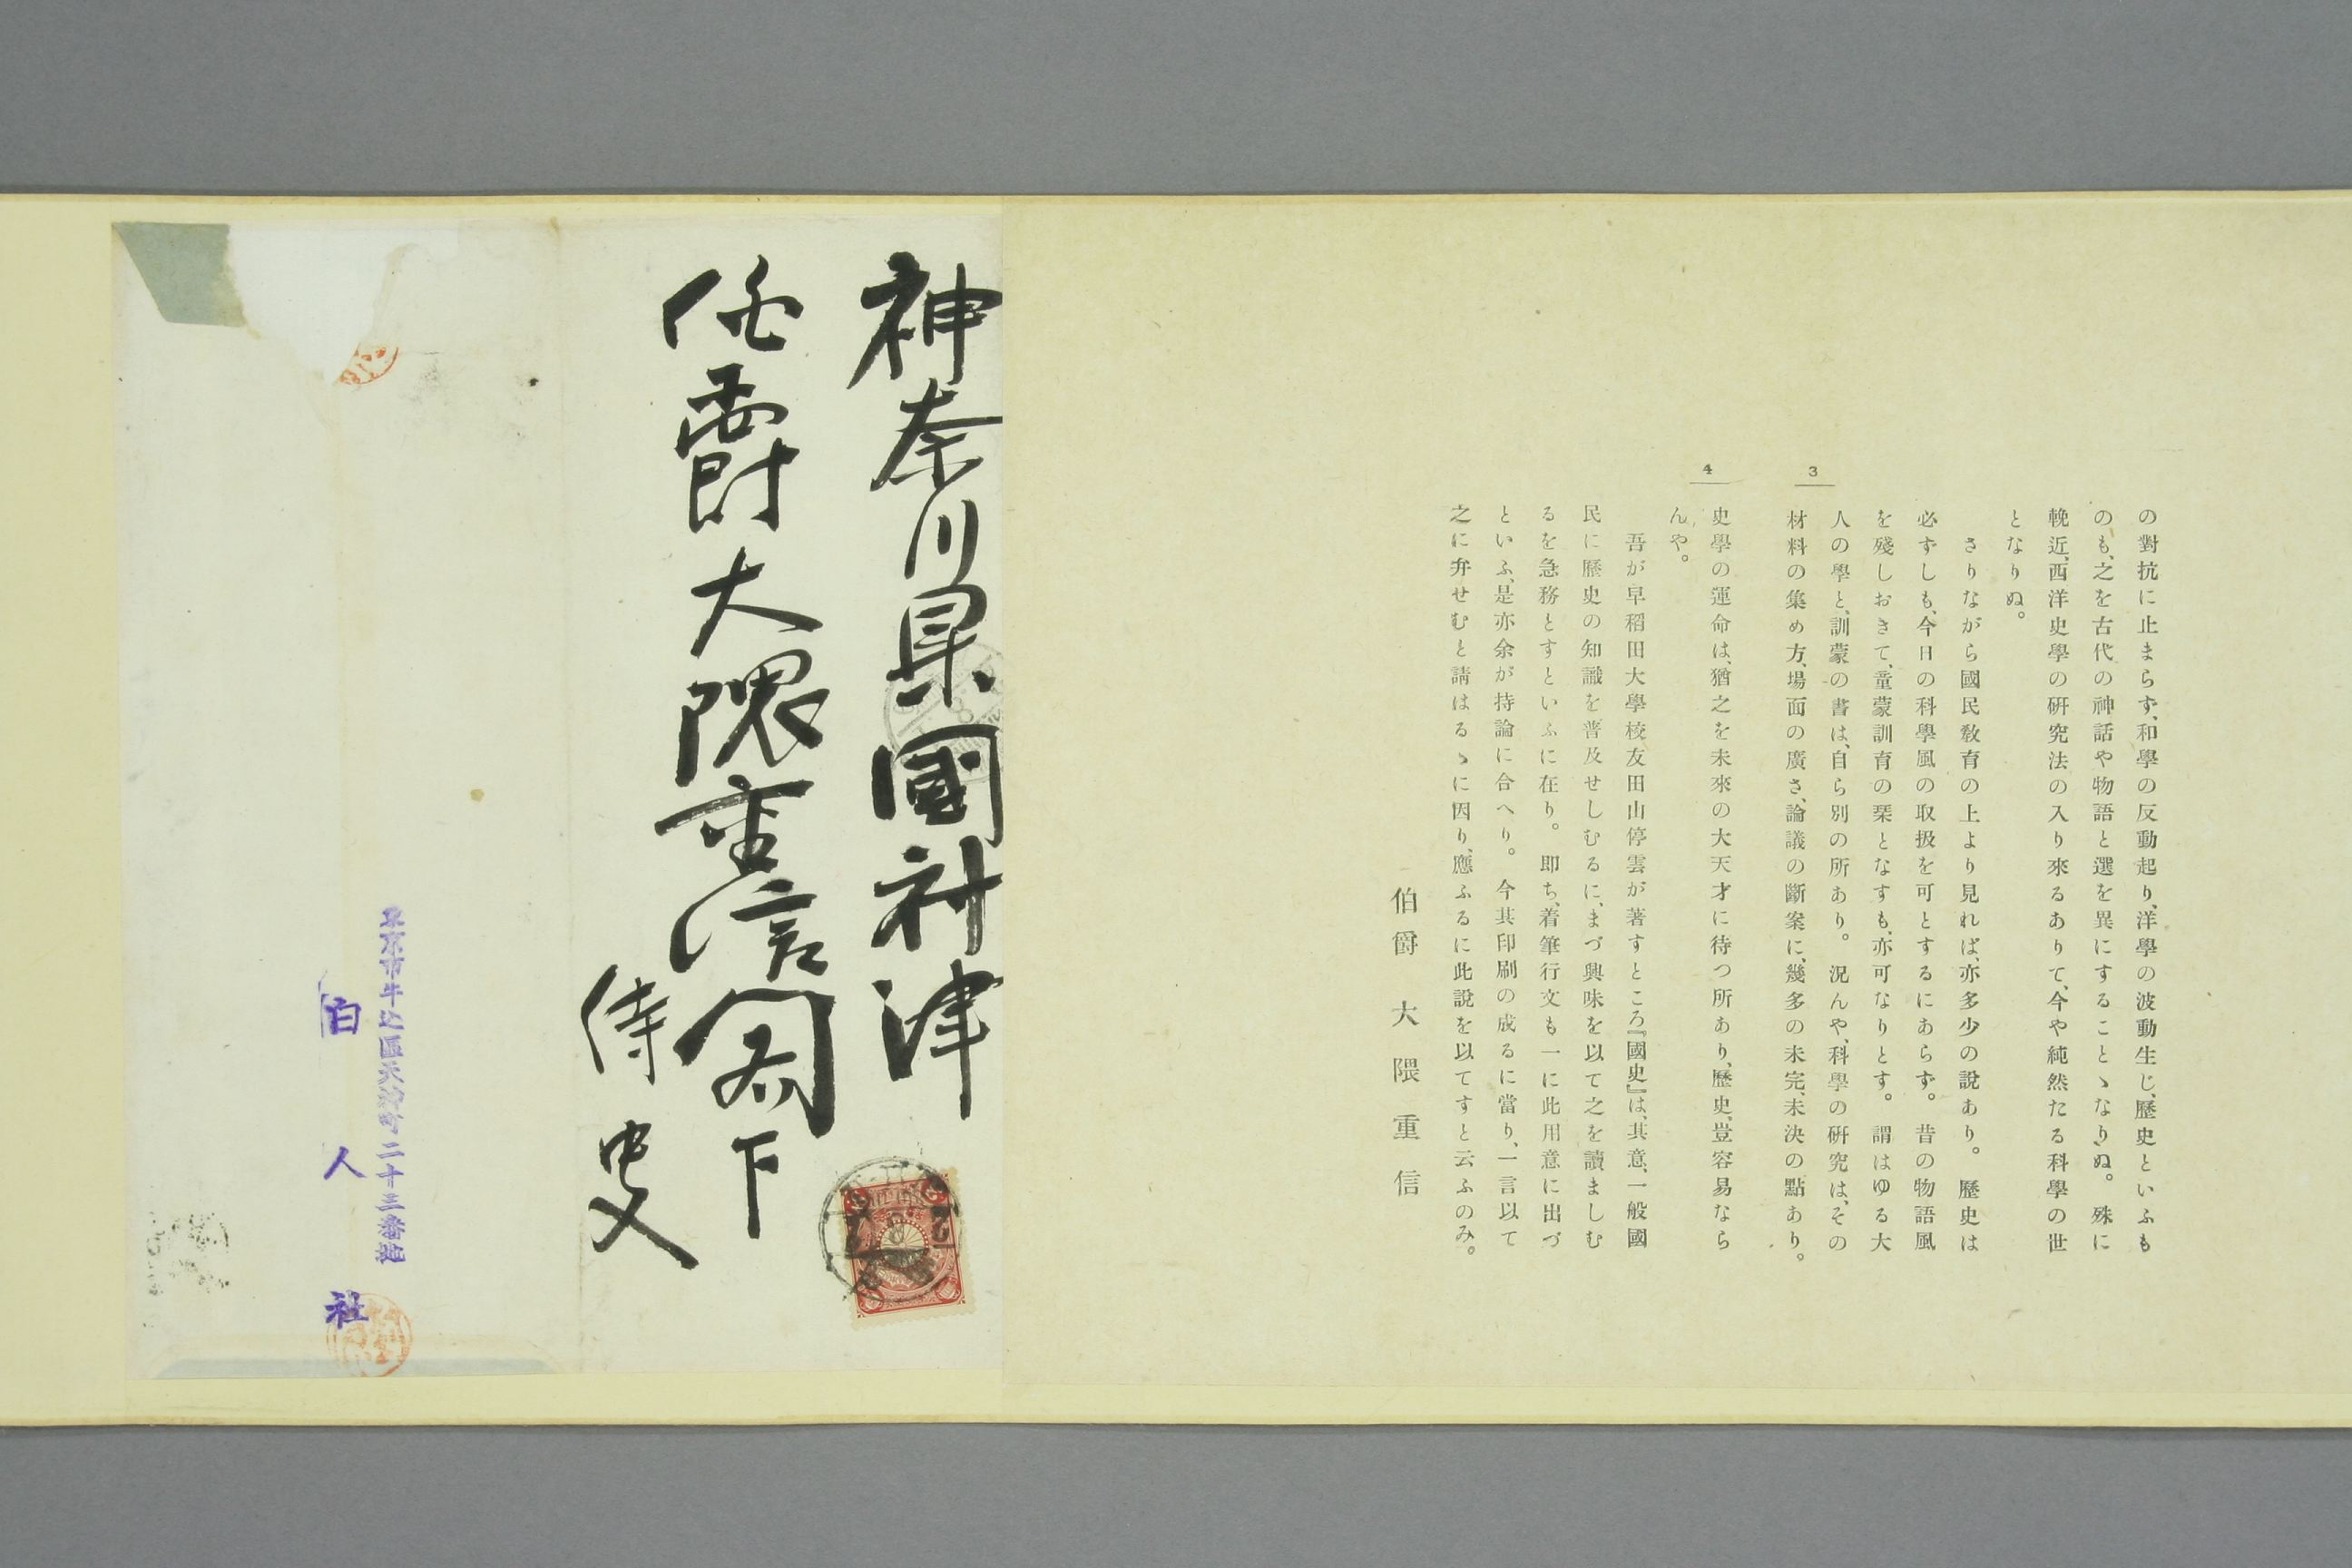 の對抗に止まらず、和學の反動起り、洋學の波動生じ、歷史といふも
のも、之を古代の神話や物語と選を異にすることゝなりぬ。殊に
輓近、西洋史學の硏究法の入り來るありて、今や純然たる科學の世
となりぬ。
さりながら國民敎育の上より見れば、亦多少の說あり。歷史は
必ずしも、今日の科學風の取扱を可とするにあらず。昔の物語風
を殘しおきて、童蒙訓育の栞となすも、亦可なりとす。謂はゆる大
人の學と、訓蒙の書は、自ら別の所あり。況んや、科學の硏究は、その
材料の集め方、場面の廣さ、論議の斷案に、幾多の未完、未決の點あり。
3
4
史學の運命は、猶之を未來の大天才に待つ所あり、歷史、豈容易なら
んや。
吾が早稻田大學校友田山停雲が著すところ『國史』は、其意、一般國
民に歷史の知識を普及せしむるに、まづ興味を以て之を讀ましむ
るを急務とすといふに在り。卽ち、着筆行文も一に此用意に出づ
といふ、是亦余が持論に合へり。今其印刷の成るに當り、一言以て
之に弁せむと請はるゝに因り、應ふるに此說を以てすと云ふのみ。
伯爵 大隈重信
神奈川県國府津
伯爵大隈重信閣下
侍史
東京市牛込區天神町二十三番地
白人社